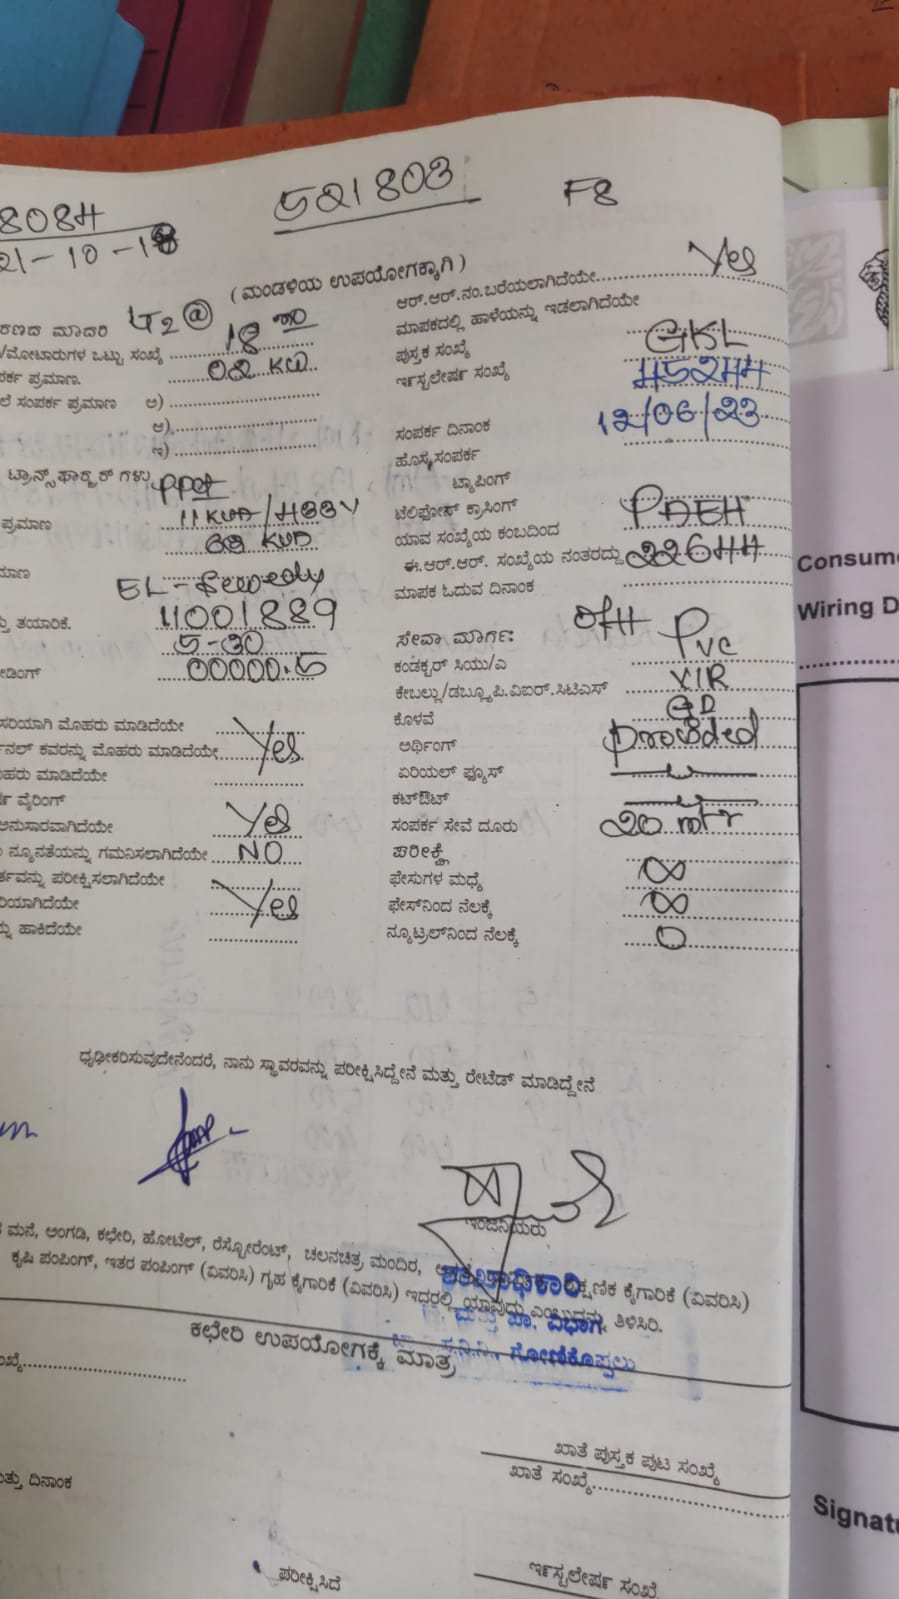 8084
521803
F8
21-10-18
( ಮಂಡಳಿಯ ಉಪಯೋಗಕ್ಕಾಗಿ )
ರಣದ ಮಾದರಿ LT2
/ಮೋಟಾರುಗಳ ಒಟ್ಟು ಸಂಖ್ಯೆ 18
ಪರ್ಕ ಪ್ರಮಾಣ. 02 KW
ಲೆ ಸಂಪರ್ಕ ಪ್ರಮಾಣ ಅ)
ಆ)
ಇ)
ಟ್ರಾನ್ಸ್‌ಫಾರ್ಮರ್ ಗಳು
ಪ್ರಮಾಣ
ಮಾಣ
ತ್ತು ತಯಾರಿಕೆ. 11001889
5-30
ೀಡಿಂಗ್ 00000.5
ಸರಿಯಾಗಿ ಮೊಹರು ಮಾಡಿದೆಯೇ
ನಲ್ ಕವರನ್ನು ಮೊಹರು ಮಾಡಿದೆಯೇ Yes
ೊಹರು ಮಾಡಿದೆಯೇ
ವೈರಿಂಗ್
ಅನುಸಾರವಾಗಿದೆಯೇ Yes
ನ್ಯೂನತೆಯನ್ನು ಗಮನಿಸಲಾಗಿದೆಯೇ NO
ರ್ಶವನ್ನು ಪರೀಕ್ಷಿಸಲಾಗಿದೆಯೇ
ರಿಯಾಗಿದೆಯೇ Yes
ನ್ನು ಹಾಕಿದೆಯೇ
ಆರ್.ಆರ್.ನಂ.ಬರೆಯಲಾಗಿದೆಯೇ Yes
ಮಾಪಕದಲ್ಲಿ ಹಾಳೆಯನ್ನು ಇಡಲಾಗಿದೆಯೇ
ಪುಸ್ತಕ ಸಂಖ್ಯೆ GKL
ಇನ್‌ಸ್ಟಲೇಷನ್ ಸಂಖ್ಯೆ 45244
ಸಂಪರ್ಕ ದಿನಾಂಕ 12/06/23
ಹೊಸ ಸಂಪರ್ಕ
ಟ್ಯಾಪಿಂಗ್
ಟೆಲಿಫೋನ್ ಕ್ರಾಸಿಂಗ್
ಯಾವ ಸಂಖ್ಯೆಯ ಕಂಬದಿಂದ
ಈ.ಆರ್.ಆರ್. ಸಂಖ್ಯೆಯ ನಂತರದ್ದು 22644
ಮಾಪಕ ಓದುವ ದಿನಾಂಕ
ಸೇವಾ ಮಾರ್ಗ: OH
ಕಂಡಕ್ಟರ್ ಸಿಯು/ಎ PVC
ಕೇಬಲ್ಲು/ಡಬ್ಲ್ಯೂ.ಪಿ.ವಿಐರ್.ಸಿಟಿಎಸ್ VIR
ಕೊಳವೆ GD
ಅರ್ಥಿಂಗ್ Provided
ಏರಿಯಲ್ ಫ್ಯೂಸ್
ಕಟ್‌ಔಟ್
ಸಂಪರ್ಕ ಸೇವೆ ದೂರು 20 mtr
ಪರೀಕ್ಷೆ
ಫೇಸುಗಳ ಮಧ್ಯೆ ∞
ಫೇಸ್‌ನಿಂದ ನೆಲಕ್ಕೆ ∞
ನ್ಯೂಟ್ರಲ್‌ನಿಂದ ನೆಲಕ್ಕೆ 0
ಧೃಢೀಕರಿಸುವುದೇನೆಂದರೆ, ನಾನು ಸ್ಥಾವರವನ್ನು ಪರೀಕ್ಷಿಸಿದ್ದೇನೆ ಮತ್ತು ರೇಟೆಡ್ ಮಾಡಿದ್ದೇನೆ
ಇಂಜಿನಿಯರು
ಮನೆ, ಅಂಗಡಿ, ಕಛೇರಿ, ಹೋಟೆಲ್, ರೆಸ್ಟೋರೆಂಟ್, ಚಲನಚಿತ್ರ ಮಂದಿರ, ಕೈಗಾರಿಕೆ (ವಿವರಿಸಿ)
ಕೃಷಿ ಪಂಪಿಂಗ್, ಇತರ ಪಂಪಿಂಗ್ (ವಿವರಿಸಿ) ಗೃಹ ಕೈಗಾರಿಕೆ (ವಿವರಿಸಿ) ಇದರಲ್ಲಿ ಯಾವುದು ಎಂಬುದನ್ನು ತಿಳಿಸಿರಿ.
ವಿಭಾಗ
ಗೋಣಿಕೊಪ್ಪಲು
ಕಛೇರಿ ಉಪಯೋಗಕ್ಕೆ ಮಾತ್ರ
ಖಾತೆ ಪುಸ್ತಕ ಪುಟ ಸಂಖ್ಯೆ
ಖಾತೆ ಸಂಖ್ಯೆ
ತ್ತು ದಿನಾಂಕ
ಪರೀಕ್ಷಿಸಿದೆ
ಇನ್‌ಸ್ಟಲೇಷನ್ ಸಂಖ್ಯೆ
Consume
Wiring D
Signatu